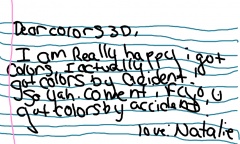 Dear colors3D,
I am Really happy i got
colors, I actually
got colors by acident!
So yah. Coment, if you
got colors by accident!
love: Natalie